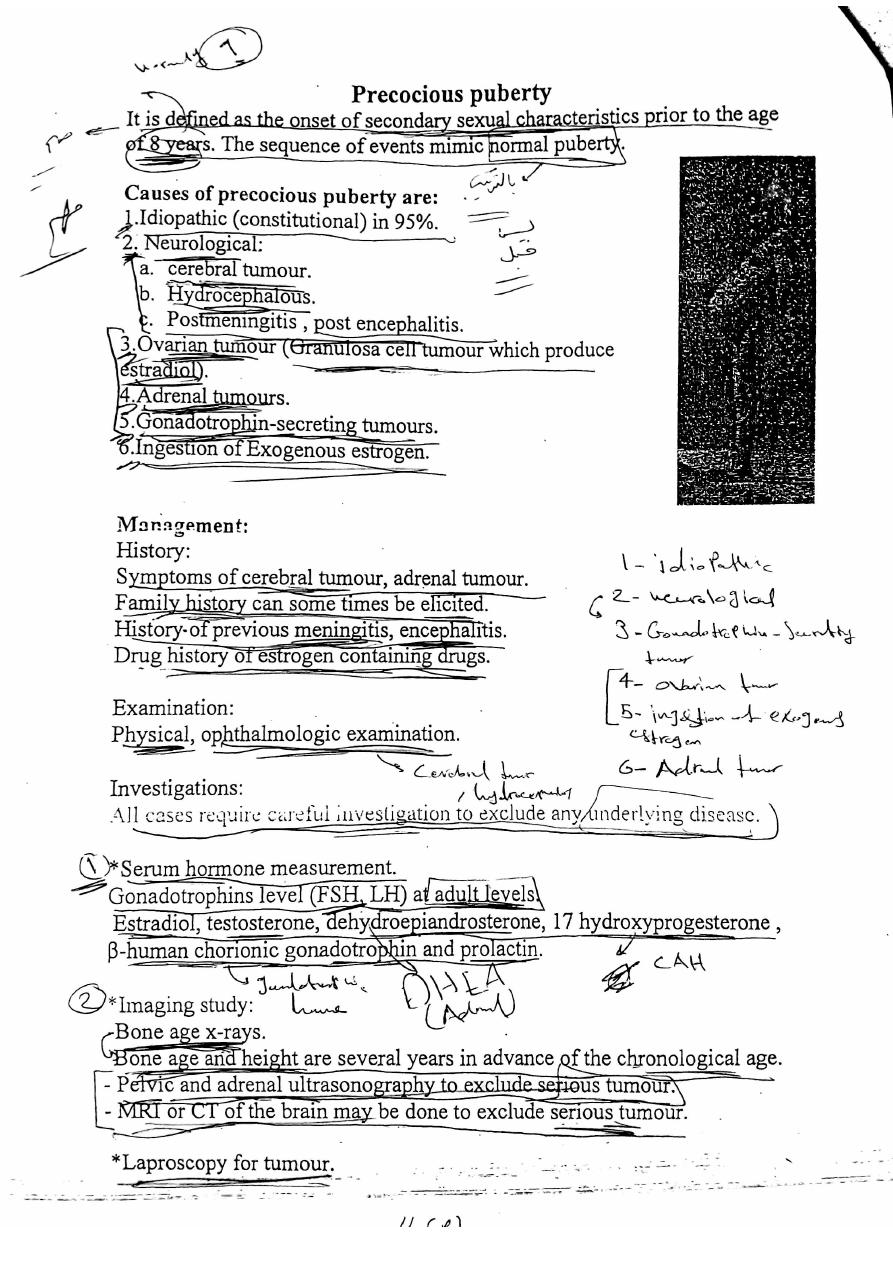 1
Precocious puberty
It is defined as the onset of secondary sexual characteristics prior to the age
of 8 years. The sequence of events mimic normal puberty.
بالترتيب
Causes of precocious puberty are:
1.Idiopathic (constitutional) in 95%.
قبل
2. Neurological:
a. cerebral tumour.
b. Hydrocephalous.
c. Postmeningitis , post encephalitis.
3.Ovarian tumour (Granulosa cell tumour which produce
estradiol).
4.Adrenal tumours.
5.Gonadotrophin-secreting tumours.
6.Ingestion of Exogenous estrogen.
Management:
History:
Symptoms of cerebral tumour, adrenal tumour.
Family history can some times be elicited.
History of previous meningitis, encephalitis.
Drug history of estrogen containing drugs.
1- idiopathic
2- neurological
3- Gonadotrophin-
tumor
4- ovarian tumor
5- ingestion of exogenous
estrogen
6- Adrenal tumor
Examination:
Physical, ophthalmologic examination.
Cerebral tumor
Investigations:
, hydrocephalus
All cases require careful investigation to exclude any underlying disease.
1 *Serum hormone measurement.
Gonadotrophins level (FSH, LH) at adult levels.
Estradiol, testosterone, dehydroepiandrosterone, 17 hydroxyprogesterone ,
β-human chorionic gonadotrophin and prolactin.
CAH
DHEA
(Adrenal)
2 *Imaging study:
Bone age x-rays.
Bone age and height are several years in advance of the chronological age.
- Pelvic and adrenal ultrasonography to exclude serious tumour.
- MRI or CT of the brain may be done to exclude serious tumour.
*Laproscopy for tumour.